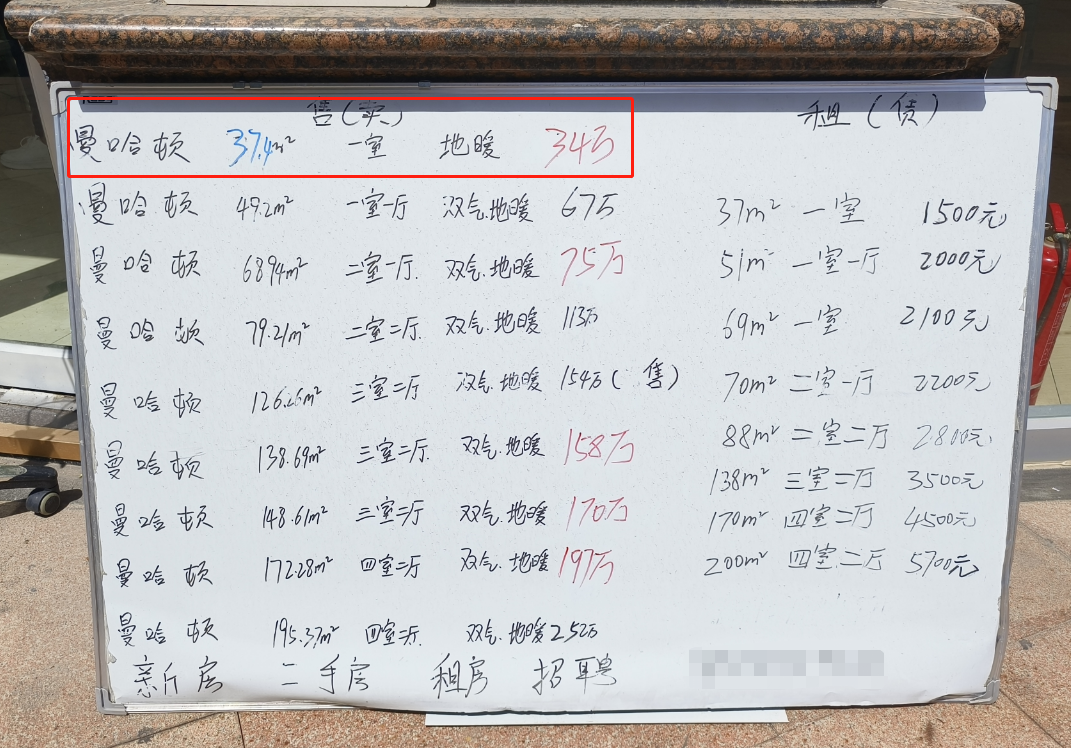 售(卖)
曼哈顿 37.4m² 一室 地暖 34万
曼哈顿 49.2m² 一室一厅 双气.地暖 67万
曼哈顿 68.94m² 二室一厅. 双气.地暖 75万
曼哈顿 79.21m² 二室二厅. 双气.地暖 113万
曼哈顿 126.26m² 三室二厅 双气.地暖 154万(售)
曼哈顿 138.69m² 三室二厅. 双气.地暖 158万
曼哈顿 148.61m² 三室二厅 双气.地暖 170万
曼哈顿 172.28m² 四室二厅 双气.地暖 197万
曼哈顿 195.37m² 四室二厅. 双气.地暖 252万
租(赁)
37m² 一室 1500元
51m² 一室一厅 2000元
69m² 一室 2100元
70m² 二室一厅 2200元
88m² 二室二厅 2800元
138m² 三室二厅 3500元
170m² 四室二厅 4500元
200m² 四室二厅 5700元
新房 二手房 租房 招聘